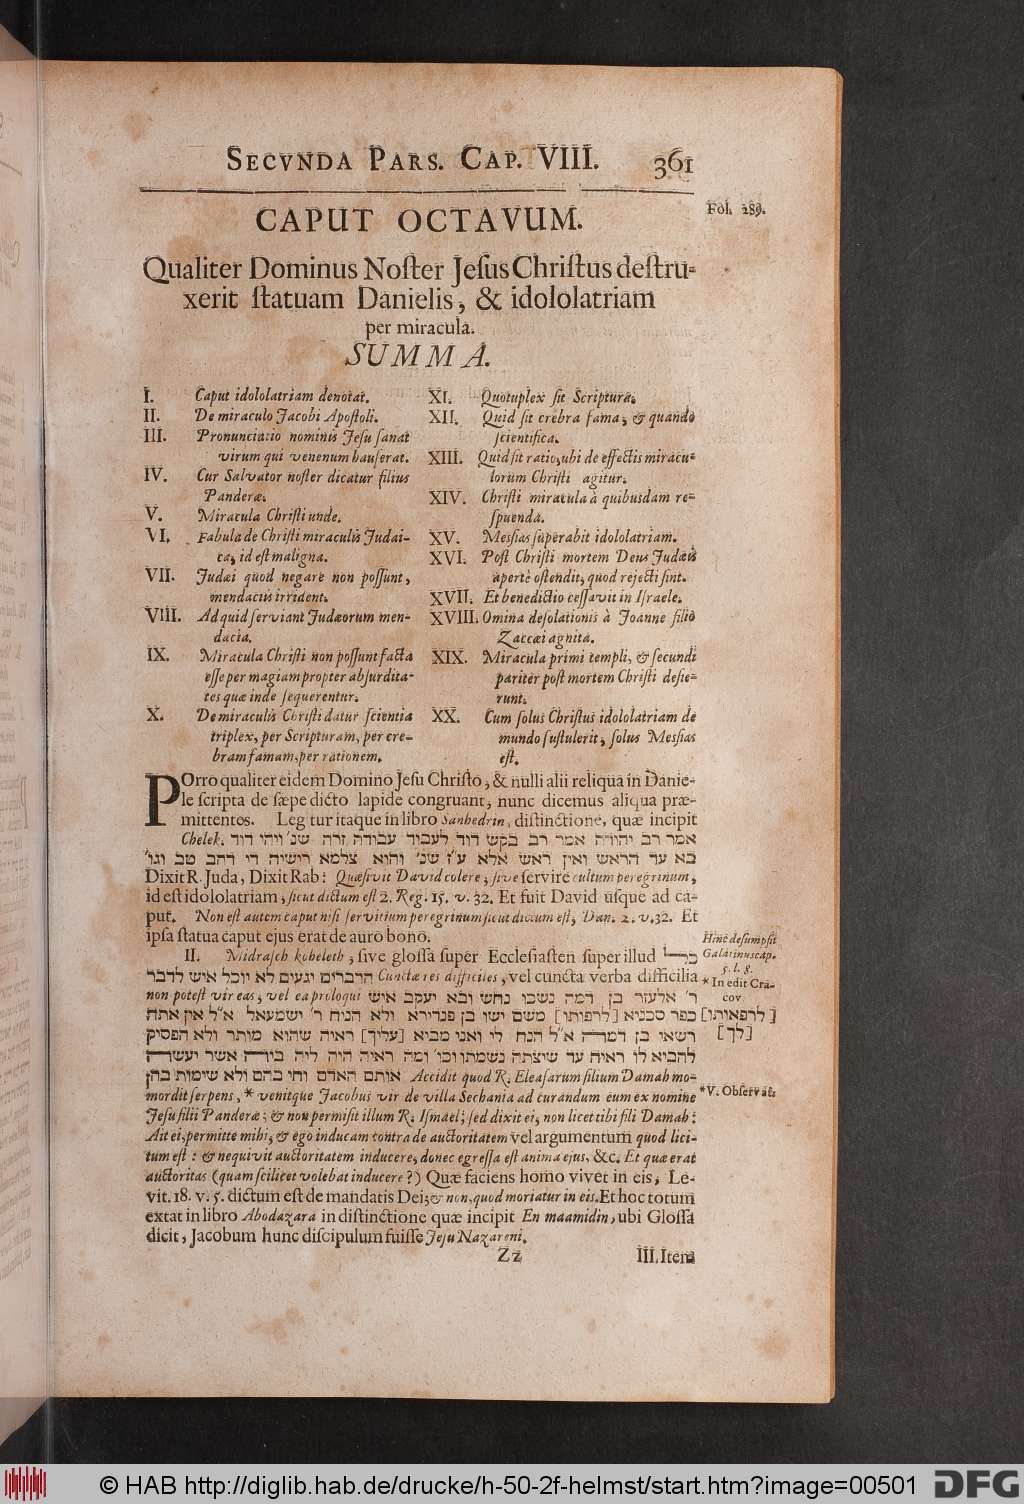 SECVNDA PARS. CAP. VIII. 361
Fol. 289.
CAPUT OCTAVUM.
Qualiter Dominus Noſter Jeſus Chriſtus deſtru-
xerit ſtatuam Danielis, & idololatriam
per miracula.
SUMMA.
I. Caput idololatriam denotat.
II. De miraculo Jacobi Apoſtoli.
III. Pronunciatio nominis Jeſu ſanat
virum qui venenum hauſerat.
IV. Cur Salvator noſter dicatur filius
Panderæ.
V. Miracula Chriſti unde.
VI. Fabula de Chriſti miraculis Judai-
ca, id eſt maligna.
VII. Judæi quod negare non poſſunt,
mendaciis irrident.
VIII. Ad quid ſerviant Judæorum men-
dacia.
IX. Miracula Chriſti non poſſunt facta
eſſe per magiam propter abſurdita-
tes quæ inde ſequerentur.
X. De miraculis Chriſti datur ſcientia
triplex, per Scripturam, per cre-
bram famam, per rationem.
XI. Quotuplex ſit Scriptura.
XII. Quid ſit crebra fama, & quando
ſcientifica.
XIII. Quid ſit ratio, ubi de effectis miracu-
lorum Chriſti agitur.
XIV. Chriſti miracula à quibuſdam re-
ſpuenda.
XV. Meſſias ſuperabit idololatriam.
XVI. Poſt Chriſti mortem Deus Judæis
apertè oſtendit, quod rejecti ſint.
XVII. Et benedictio ceſſavit in Iſraele.
XVIII. Omina deſolationis à Joanne filio
Zaccæi agnita.
XIX. Miracula primi templi, & ſecundi
pariter poſt mortem Chriſti deſie-
runt.
XX. Cum ſolus Chriſtus idololatriam de
mundo ſuſtulerit, ſolus Meſſias
eſt.
POrro qualiter eidem Domino Jeſu Chriſto, & nulli alii reliqua in Danie-
le ſcripta de ſæpe dicto lapide congruant, nunc dicemus aliqua præ-
mittentes. Leg tur itaque in libro Sanhedrin, diſtinctione, quæ incipit
Chelek. אמר רב יהודה אמר רב בקש דוד לעבוד עבודה זרה שנ׳ ויהי דוד
בא עד הראש ואין ראש אלא ע״ז שנ׳ והוא צלמא רישיה די דהב טב וגו׳
Dixit R. Juda, Dixit Rab: Quæſivit David colere, ſive ſervire cultum peregrinum,
id eſt idololatriam, ſicut dictum eſt 2. Reg. 15. v. 32. Et fuit David uſque ad ca-
put. Non eſt autem caput niſi ſervitium peregrinum ſicut dictum eſt, Dan. 2. v. 32. Et
ipſa ſtatua caput ejus erat de auro bono.
II. Midraſch koheleth, ſive gloſſa ſuper Eccleſiaſten ſuper illud כל
הדברים יגעים לא יוכל איש לדבר Cunctæ res difficiles, vel cuncta verba difficilia
non poteſt vir eas, vel ea proloqui ר׳ אלעזר בן דמה נשכו נחש ובא יעקב איש
כפר סכניא [לרפותו] משם ישו בן פנדירא ולא הנוח ר׳ ישמעאל א״ל אין אתה
רשאי בן דמה א״ל הנח לי ואני מביא [עליך] ראיה שהוא מותר ולא הפסיק
להביא לו ראיה עד שיצתה נשמתו וכו׳ ומה ראיה היה ליה ביה אשר יעשה
אותם האדם וחי בהם ולא שימות בהן Accidit quod R. Eleaſarum filium Damah mo-
mordit ſerpens, * venitque Jacobus vir de villa Sechania ad curandum eum ex nomine
Jeſu filii Panderæ; & non permiſit illum R. Iſmael; ſed dixit ei, non licet tibi fili Damah:
Ait ei, permitte mihi, & ego inducam contra de auctoritatem vel argumentum quod lici-
tum eſt: & nequivit auctoritatem inducere, donec egreſſa eſt anima ejus, &c. Et quæ erat
auctoritas (quam ſcilicet volebat inducere?) Quæ faciens homo vivet in eis, Le-
vit. 18. v. 5. dictum eſt de mandatis Dei; & non, quod moriatur in eis. Et hoc totum
extat in libro Abodazara in diſtinctione quæ incipit En maamidin, ubi Gloſſa
dicit, Jacobum hunc diſcipulum fuiſſe Jeſu Nazareni.
Hinc deſumpſit
Galatinus cap.
5. l. 8.
* In edit Cra-
cov.
[לרפאותו]
[לך]
*V. Obſervat.
Zz III. Item
© HAB http://diglib.hab.de/drucke/h-50-2f-helmst/start.htm?image=00501 DFG